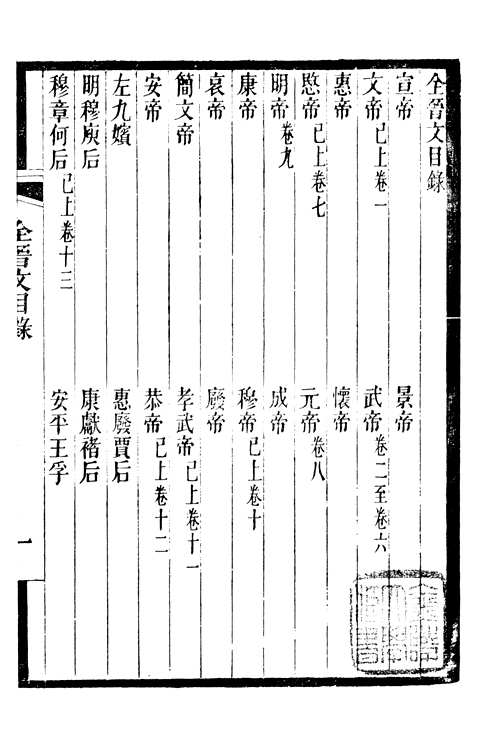 全晉文目錄
宣帝 景帝
文帝已上卷一 武帝卷二至卷六
惠帝 懷帝
愍帝已上卷七 元帝卷八
明帝卷九 成帝
康帝 穆帝已上卷十
哀帝 廢帝
簡文帝 孝武帝已上卷十一
安帝 恭帝已上卷十二
左九嬪 惠廢賈后
明穆庾后 康獻褚后
穆章何后已上卷十三 安平王孚
全晉文目錄 一